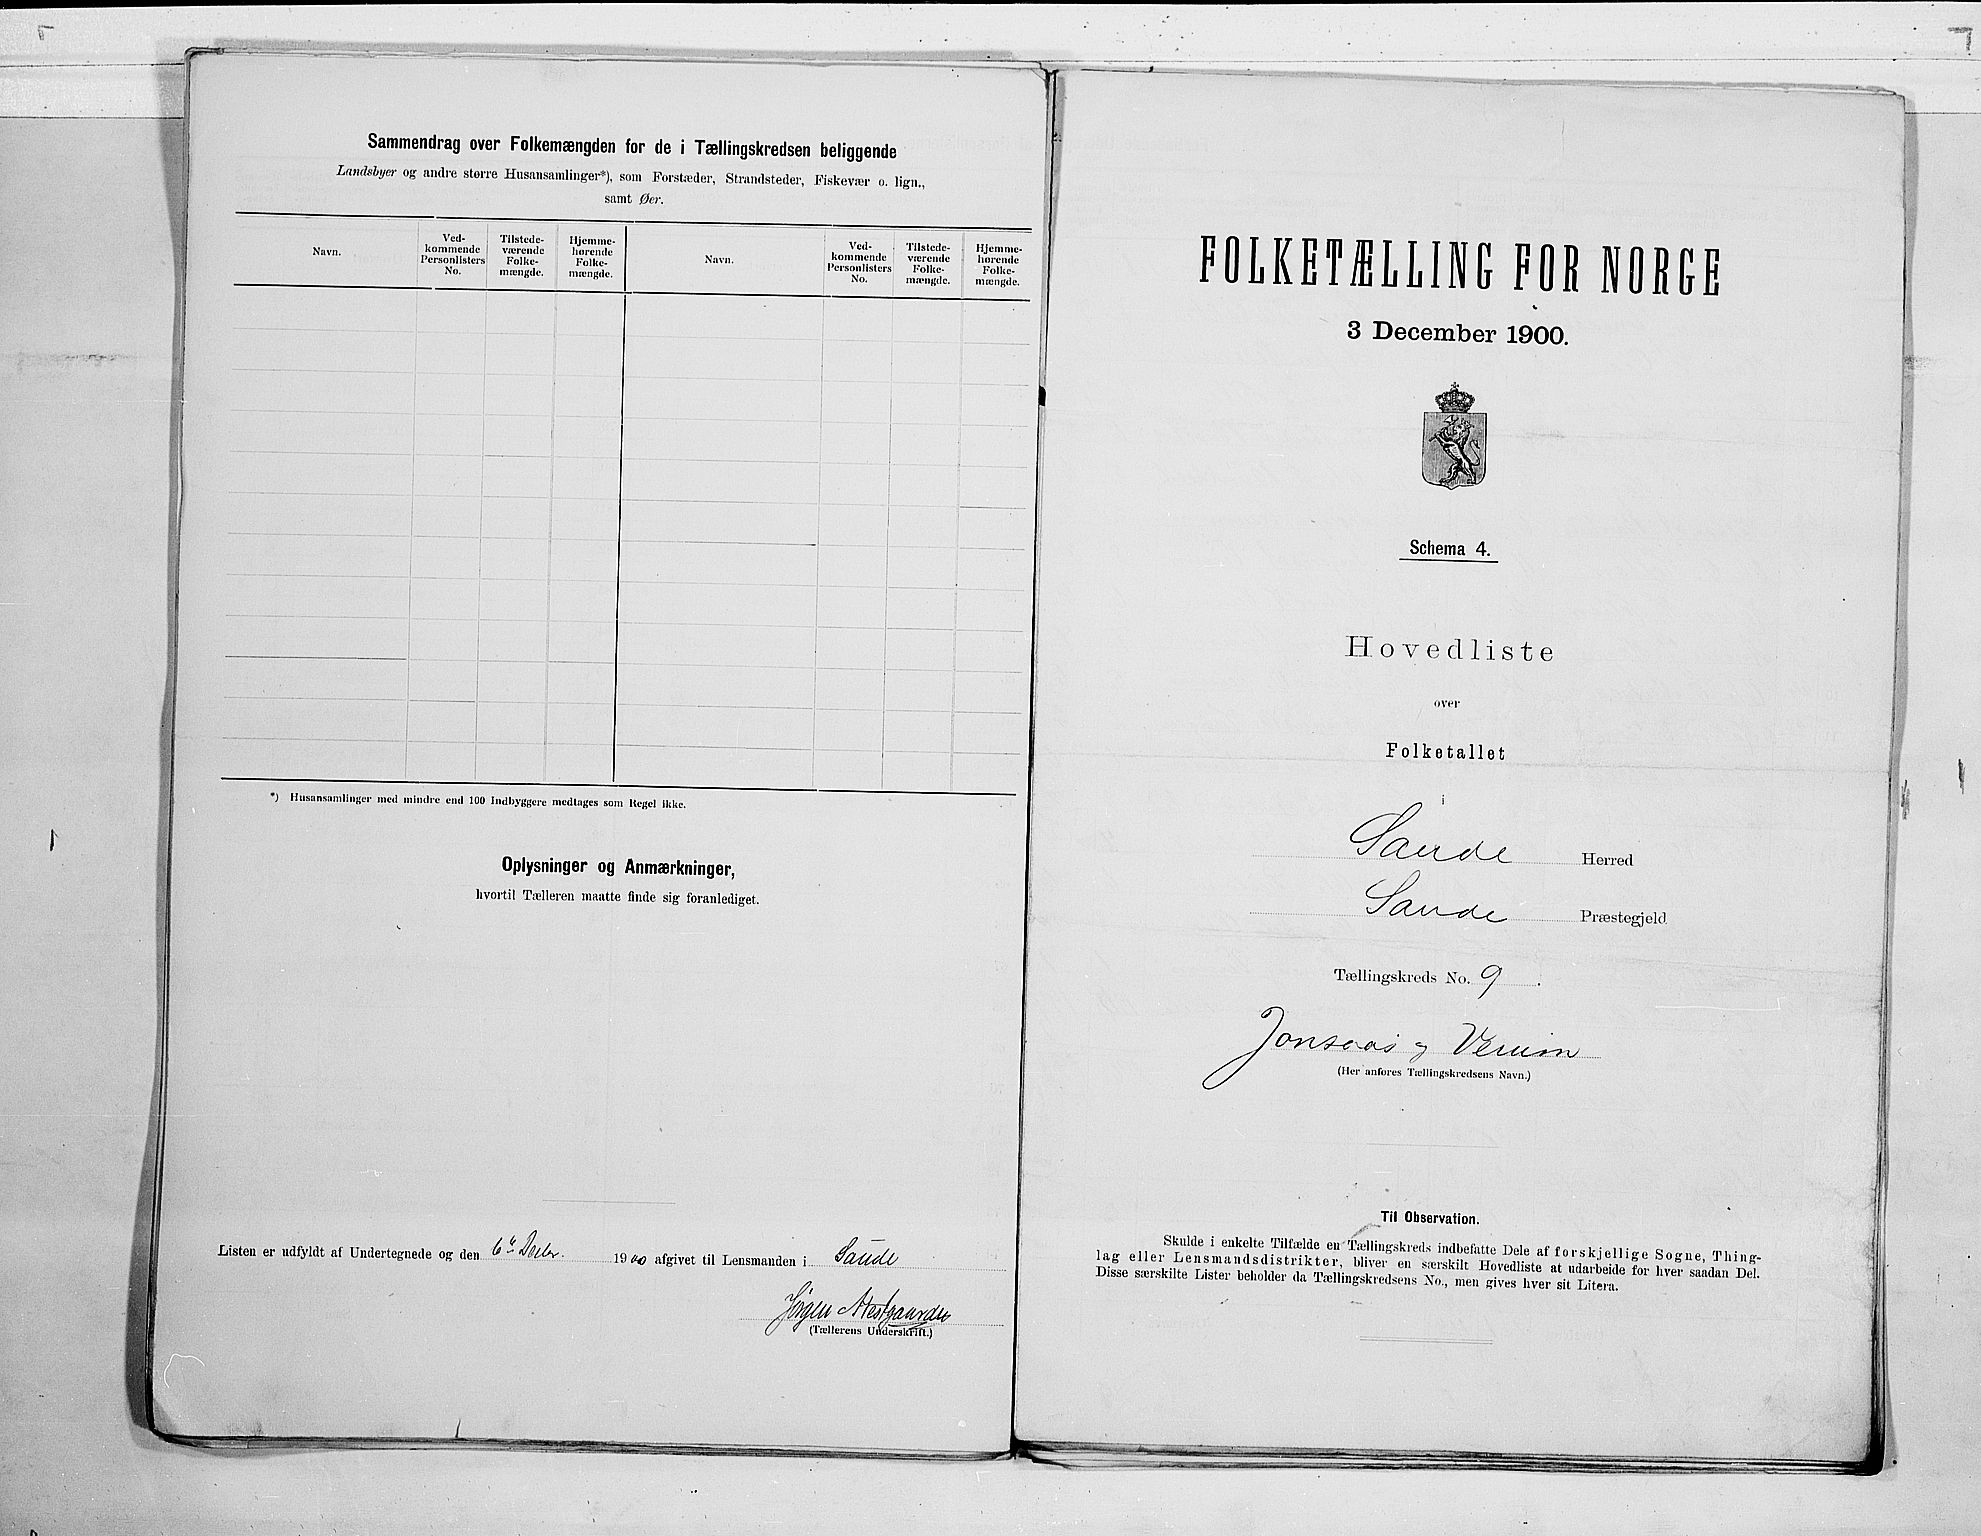 Sammendrag over Folkemængden for de i Tællingskredsen beliggende
Landsbyer og andre større Husansamlinger*), som Forstæder, Strandsteder, Fiskevær o. lign.,
samt Øer.
Navn.
Ved-
kommende
Personlisters
No.
Tilstede-
værende
Folke-
mængde.
Hjemme-
hørende
Folke-
mængde.
Navn.
Ved-
kommende
Personlisters
No.
Tilstede-
værende
Folke-
mængde.
Hjemme-
hørende
Folke-
mængde.
*) Husansamlinger med mindre end 100 Indbyggere medtages som Regel ikke.
Oplysninger og Anmærkninger,
hvortil Tælleren maatte finde sig foranlediget.
Listen er udfyldt af Undertegnede og den 6te Decbr. 1900 afgivet til Lensmanden i Saude
Jørgen
(Tællerens Underskrift.)
FOLKETÆLLING FOR NORGE
3 December 1900.
Schema 4.
Hovedliste
over
Folketallet
i
Saude Herred
Saude Præstegjeld
Tællingskreds No. 9.
Jonsaas og
(Her anføres Tællingskredsens Navn.)
Til Observation.
Skulde i enkelte Tilfælde en Tællingskreds indbefatte Dele af forskjellige Sogne, Thing-
lag eller Lensmandsdistrikter, bliver en særskilt Hovedliste at udarbeide for hver saadan Del.
Disse særskilte Lister beholder da Tællingskredsens No., men gives hver sit Litera.